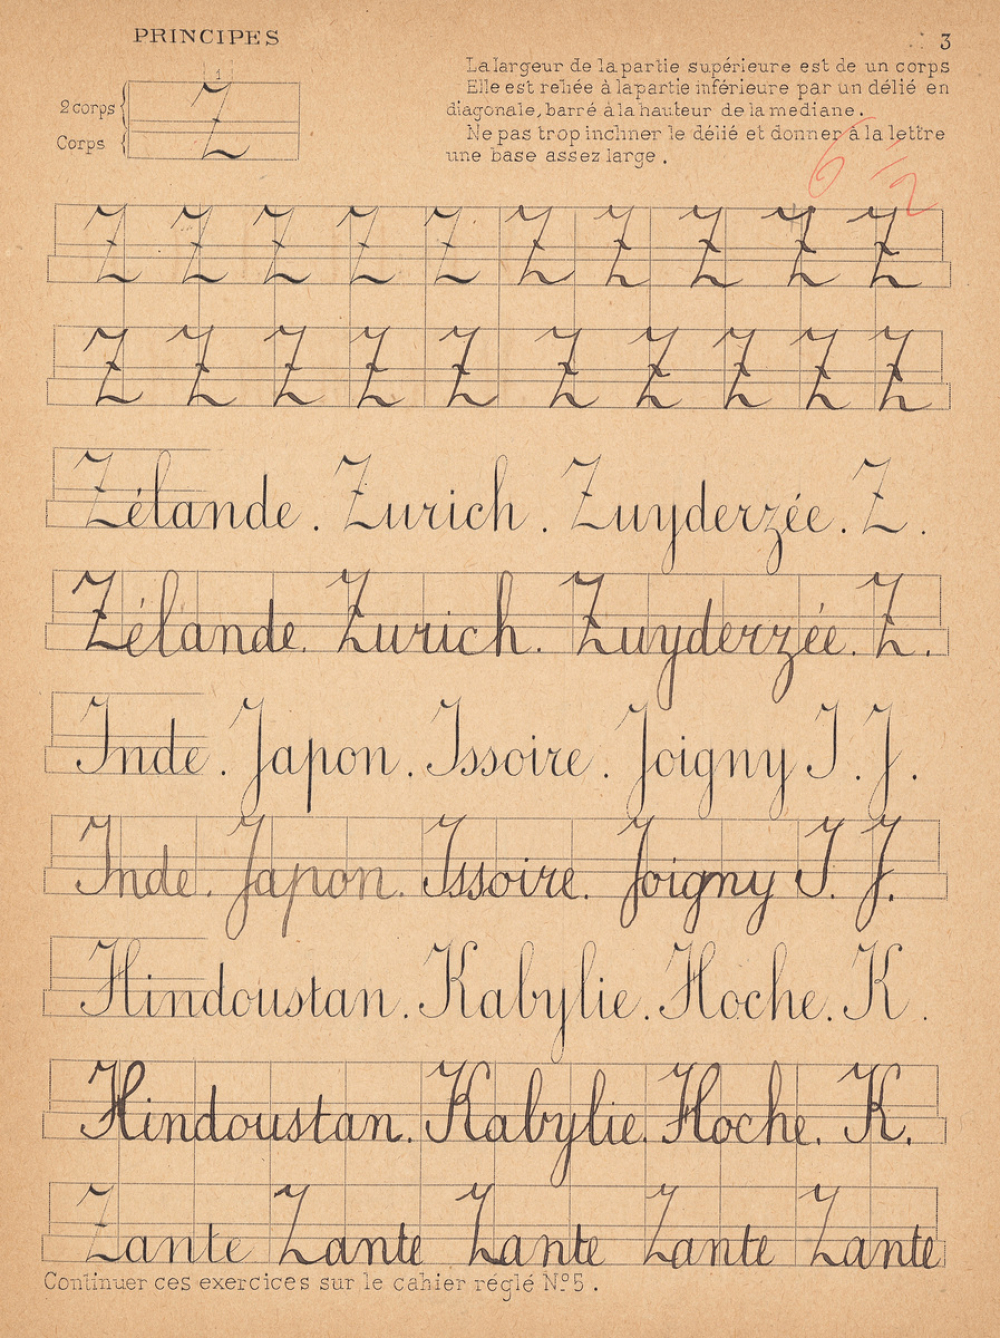 PRINCIPES
3
1
2 corps
Corps
Z
La largeur de la partie supérieure est de un corps
Elle est reliée à la partie inférieure par un délié en
diagonale, barré à la hauteur de la mediane.
Ne pas trop incliner le délié et donner à la lettre
une base assez large.
6 1/2
Z Z Z Z Z Z Z Z Z Z
Z Z Z Z Z Z Z Z Z Z
Zélande. Zurich. Zuyderzée. Z.
Zélande. Zurich. Zuyderzée. Z.
Inde. Japon. Issoire. Joigny I. J.
Inde. Japon. Issoire. Joigny I. J.
Hindoustan. Kabylie. Hoche. K.
Hindoustan. Kabylie. Hoche. K.
Zante Zante Zante Zante Zante
Continuer ces exercices sur le cahier réglé Nº 5.